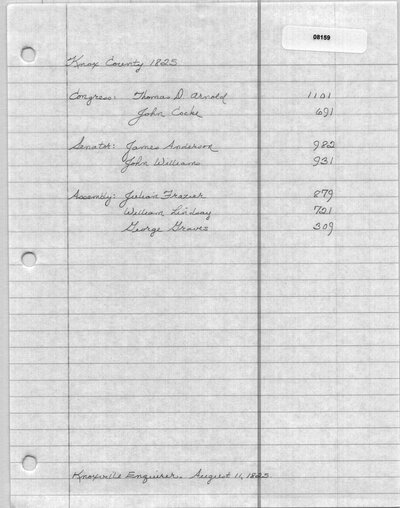 08159
Knox County 1825
Congress: Thomas D. Arnold 1101
John Cocke 691
Senator: James Anderson 982
John Williams 931
Assembly: Julian Frazier 879
William Lindsay 721
George Graves 309
Knoxville Enquirer. August 11, 1825